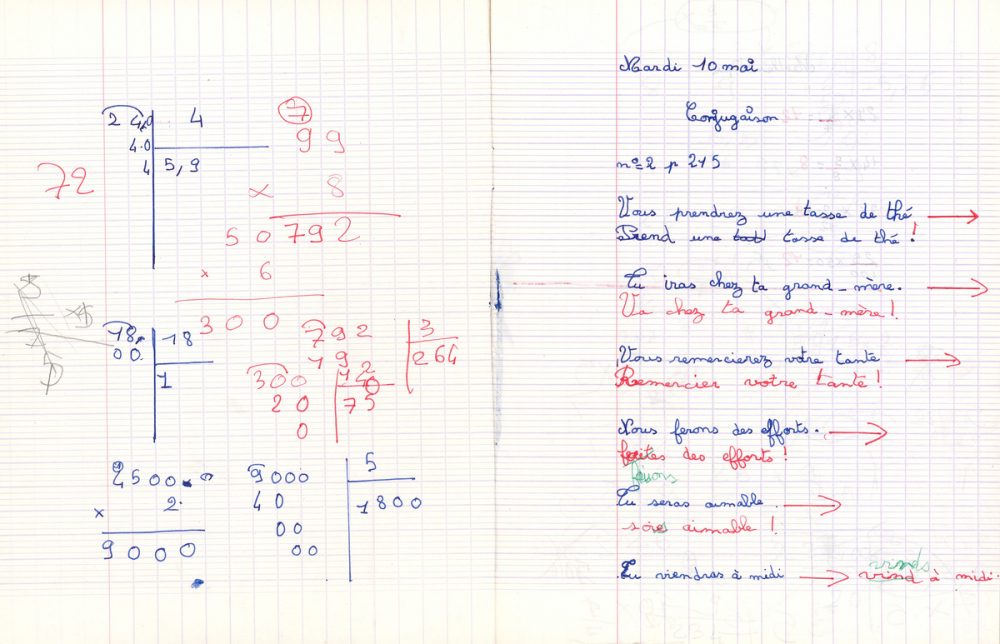 24,0 4
4.0
4 5,9
72
7
99
× 8
50 792
× 6
300
792 3
19 264
12
0
300 4
20 75
0
18, 18
00. 1
4500
× 2.
9000
9000 5
40 1800
00
00
Mardi 10 mai
Conjugaison
nº2 p 215
Vous prendrez une tasse de thé →
Prend une tasse de thé !
Tu iras chez ta grand-mère. →
Va chez ta grand-mère !
Vous remercierez votre tante →
Remercier votre tante !
Nous ferons des efforts. →
faites des efforts !
faisons
Tu seras aimable. →
sois aimable !
viends
Tu viendras à midi → viend à midi.